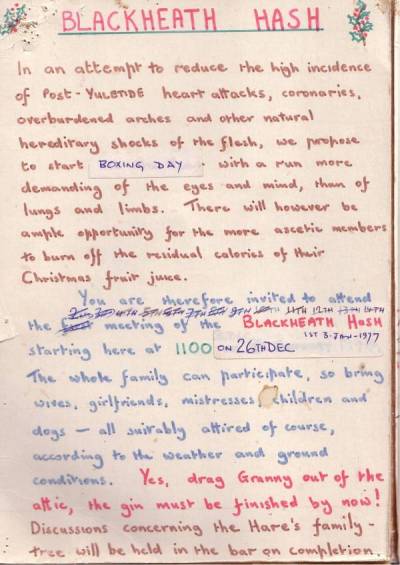 BLACKHEATH HASH
In an attempt to reduce the high incidence
of POST-YULETIDE heart attacks, coronaries,
overburdened arches and other natural
hereditary shocks of the flesh, we propose
to start BOXING DAY. with a run more
demanding of the eyes and mind, than of
lungs and limbs. There will however be
ample opportunity for the more ascetic members
to burn off the residual calories of their
Christmas fruit juice.
You are therefore invited to attend
4TH 5TH 6TH 7TH 8TH 9TH 10TH 11TH 12TH 13TH 14TH
the meeting of the BLACKHEATH HASH
1ST 3-JAN-1977
starting here at 1100 ON 26TH DEC
The whole family can participate, so bring
wives, girlfriends, mistresses, children and
dogs – all suitably attired of course,
according to the weather and ground
conditions. Yes, drag Granny out of the
attic, the gin must be finished by now!
Discussions concerning the Hare's family-
tree will be held in the bar on completion.